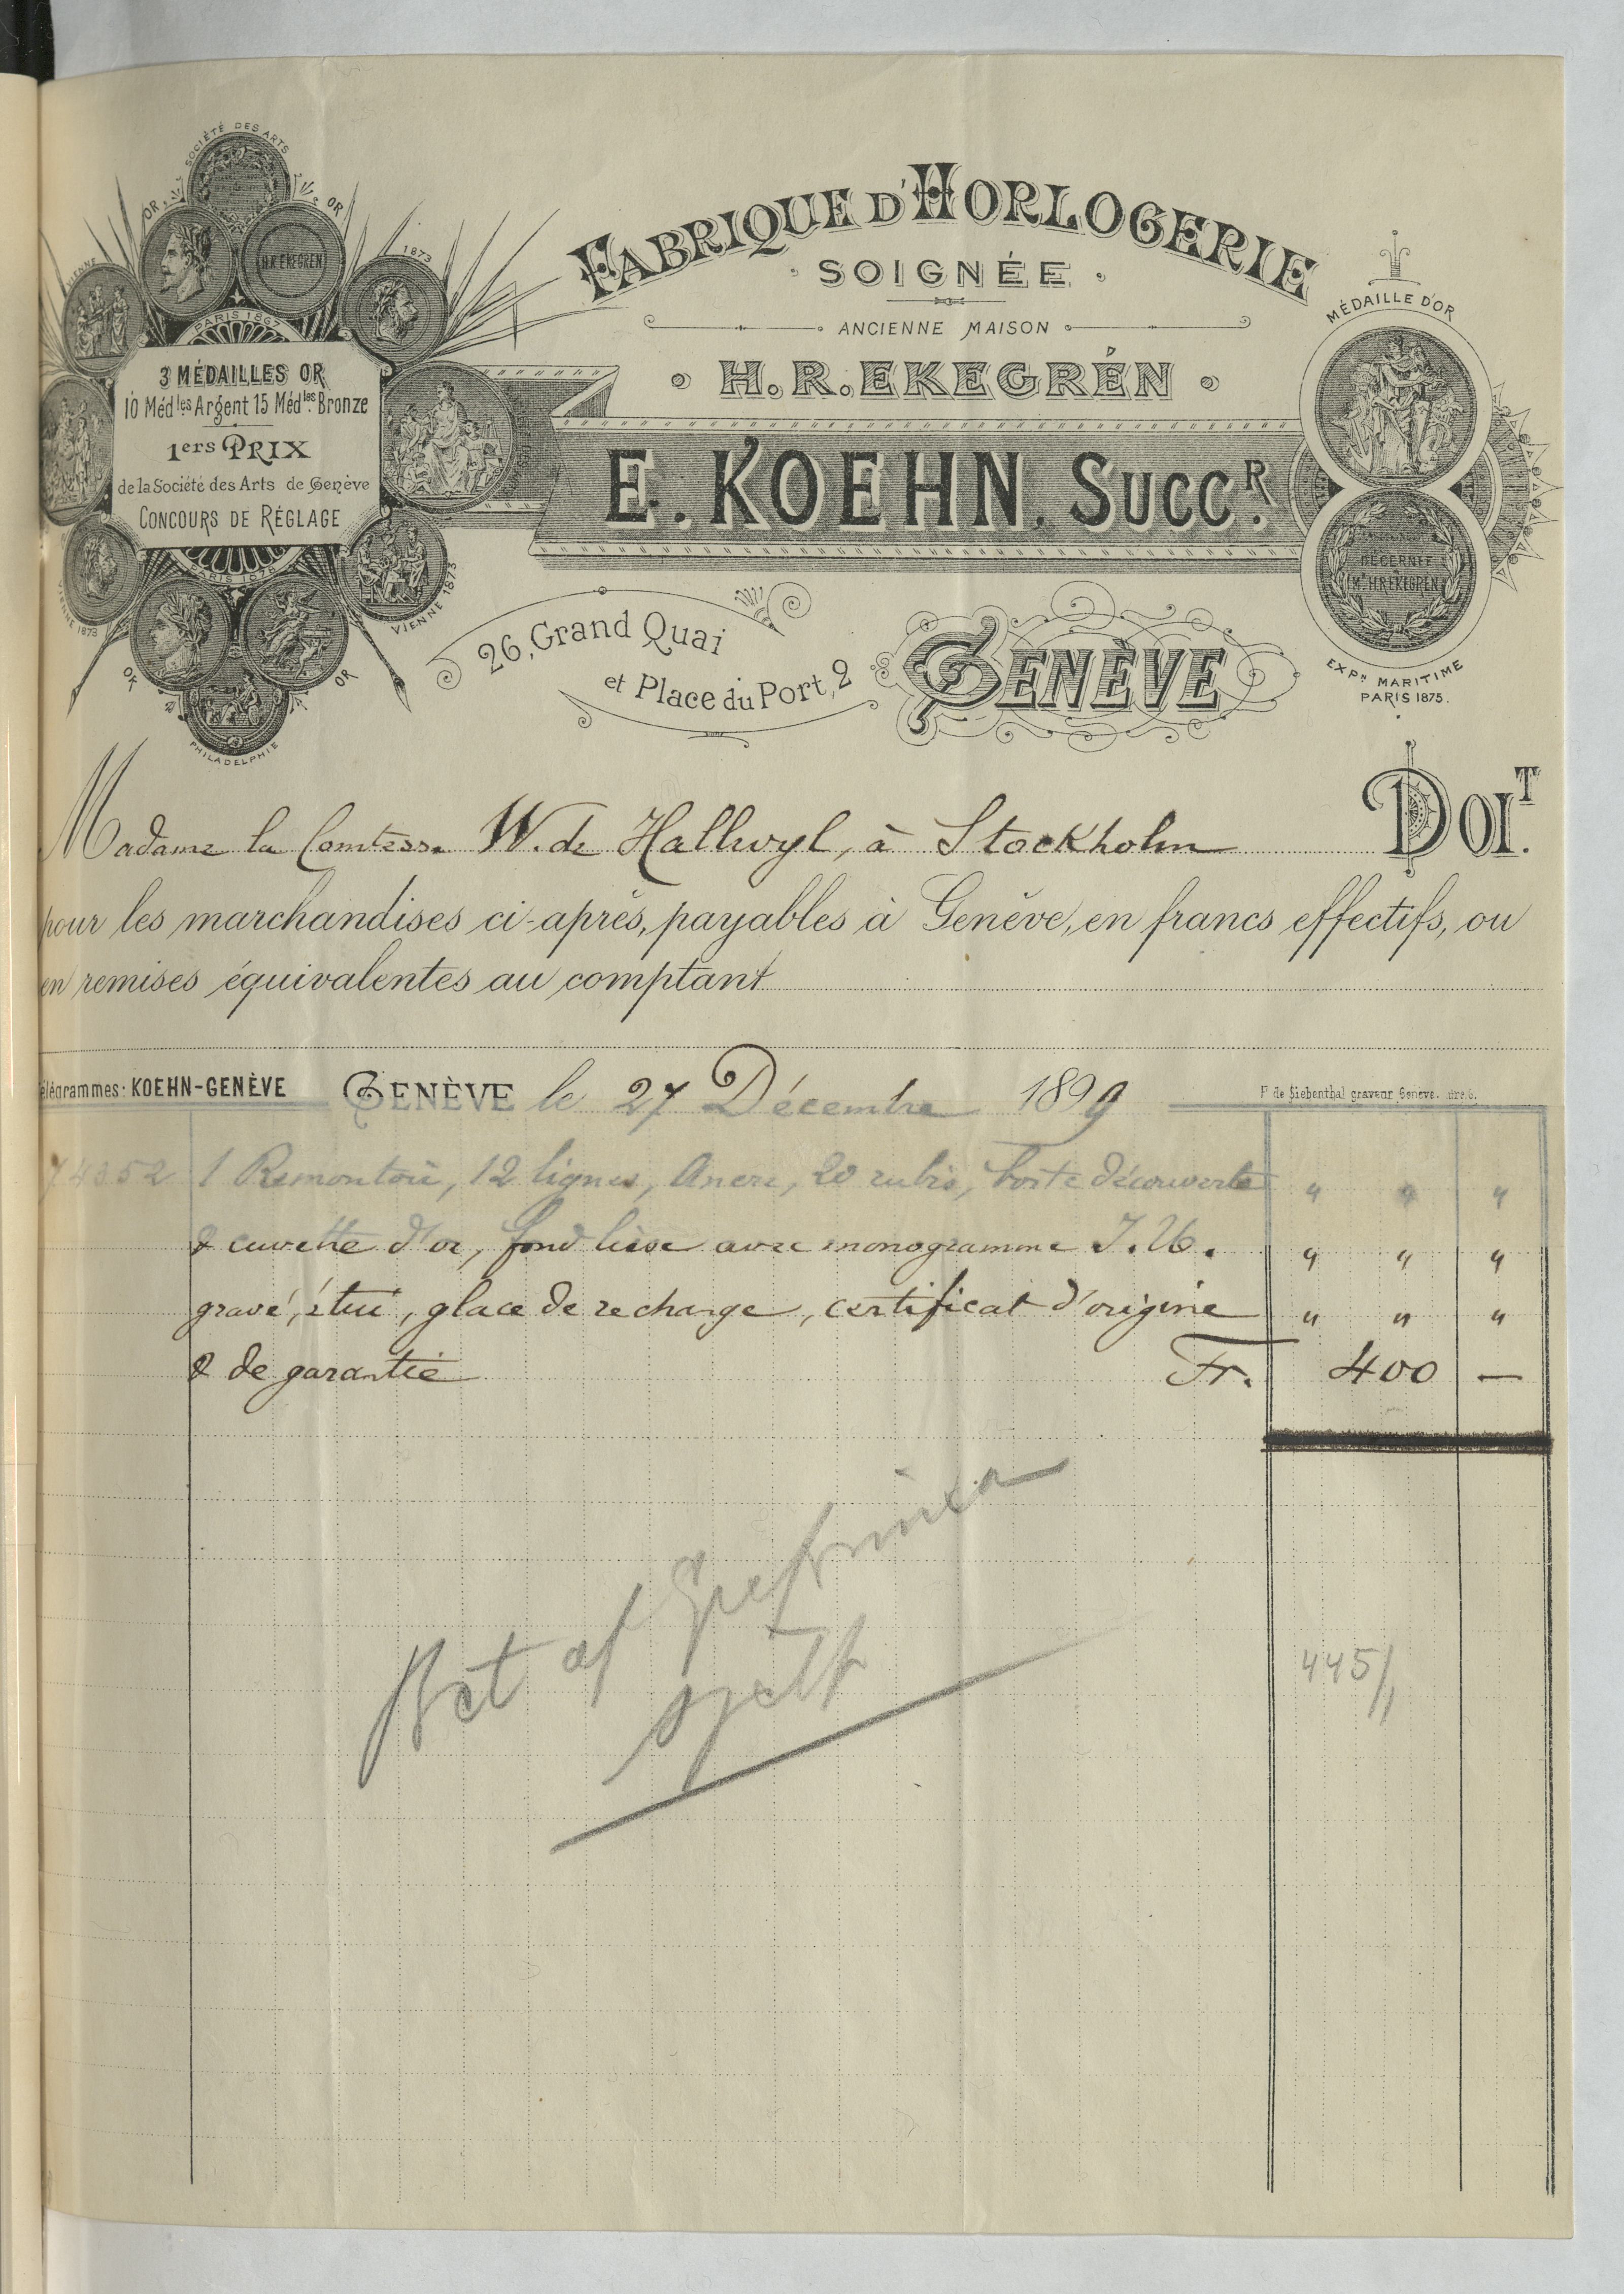 SOCIÉTÉ DES ARTS
OR
OR
H.R. EKEGREN
VIENNE
1873
PARIS 1867
3 MÉDAILLES OR
10 Médles Argent 15 Médles Bronze
1ers PRIX
de la Société des Arts de Genève
CONCOURS DE RÉGLAGE
PARIS 1878
VIENNE 1873
VIENNE 1873
OR
OR
PHILADELPHIE
FABRIQUE D'HORLOGERIE
SOIGNÉE
ANCIENNE MAISON
H. R. EKEGRÉN
E. KOEHN. SUCCR.
26, Grand Quai
et Place du Port, 2
GENÈVE
MÉDAILLE D'OR
DÉCERNÉE
Mr H.R. EKEGRÉN
EXPn MARITIME
PARIS 1875.
Madame la Comtesse W. de Hallwyl, à Stockholm DOIT.
pour les marchandises ci-après, payables à Genève, en francs effectifs, ou
en remises équivalentes au comptant
Télégrammes: KOEHN-GENÈVE
GENÈVE le 27 Décembre 1899
F. de Siebenthal graveur Genève.
74352 1 Remontoir, 12 lignes, Ancre, 20 rubis, boîte découverte " " "
& cuvette d'or, fond lisse avec monogramme J. U. " " "
gravé, étui, glace de rechange, certificat d'origine " " "
& de garantie Fr. 400 —
Bet af Grefvinnan
sjelf
445/